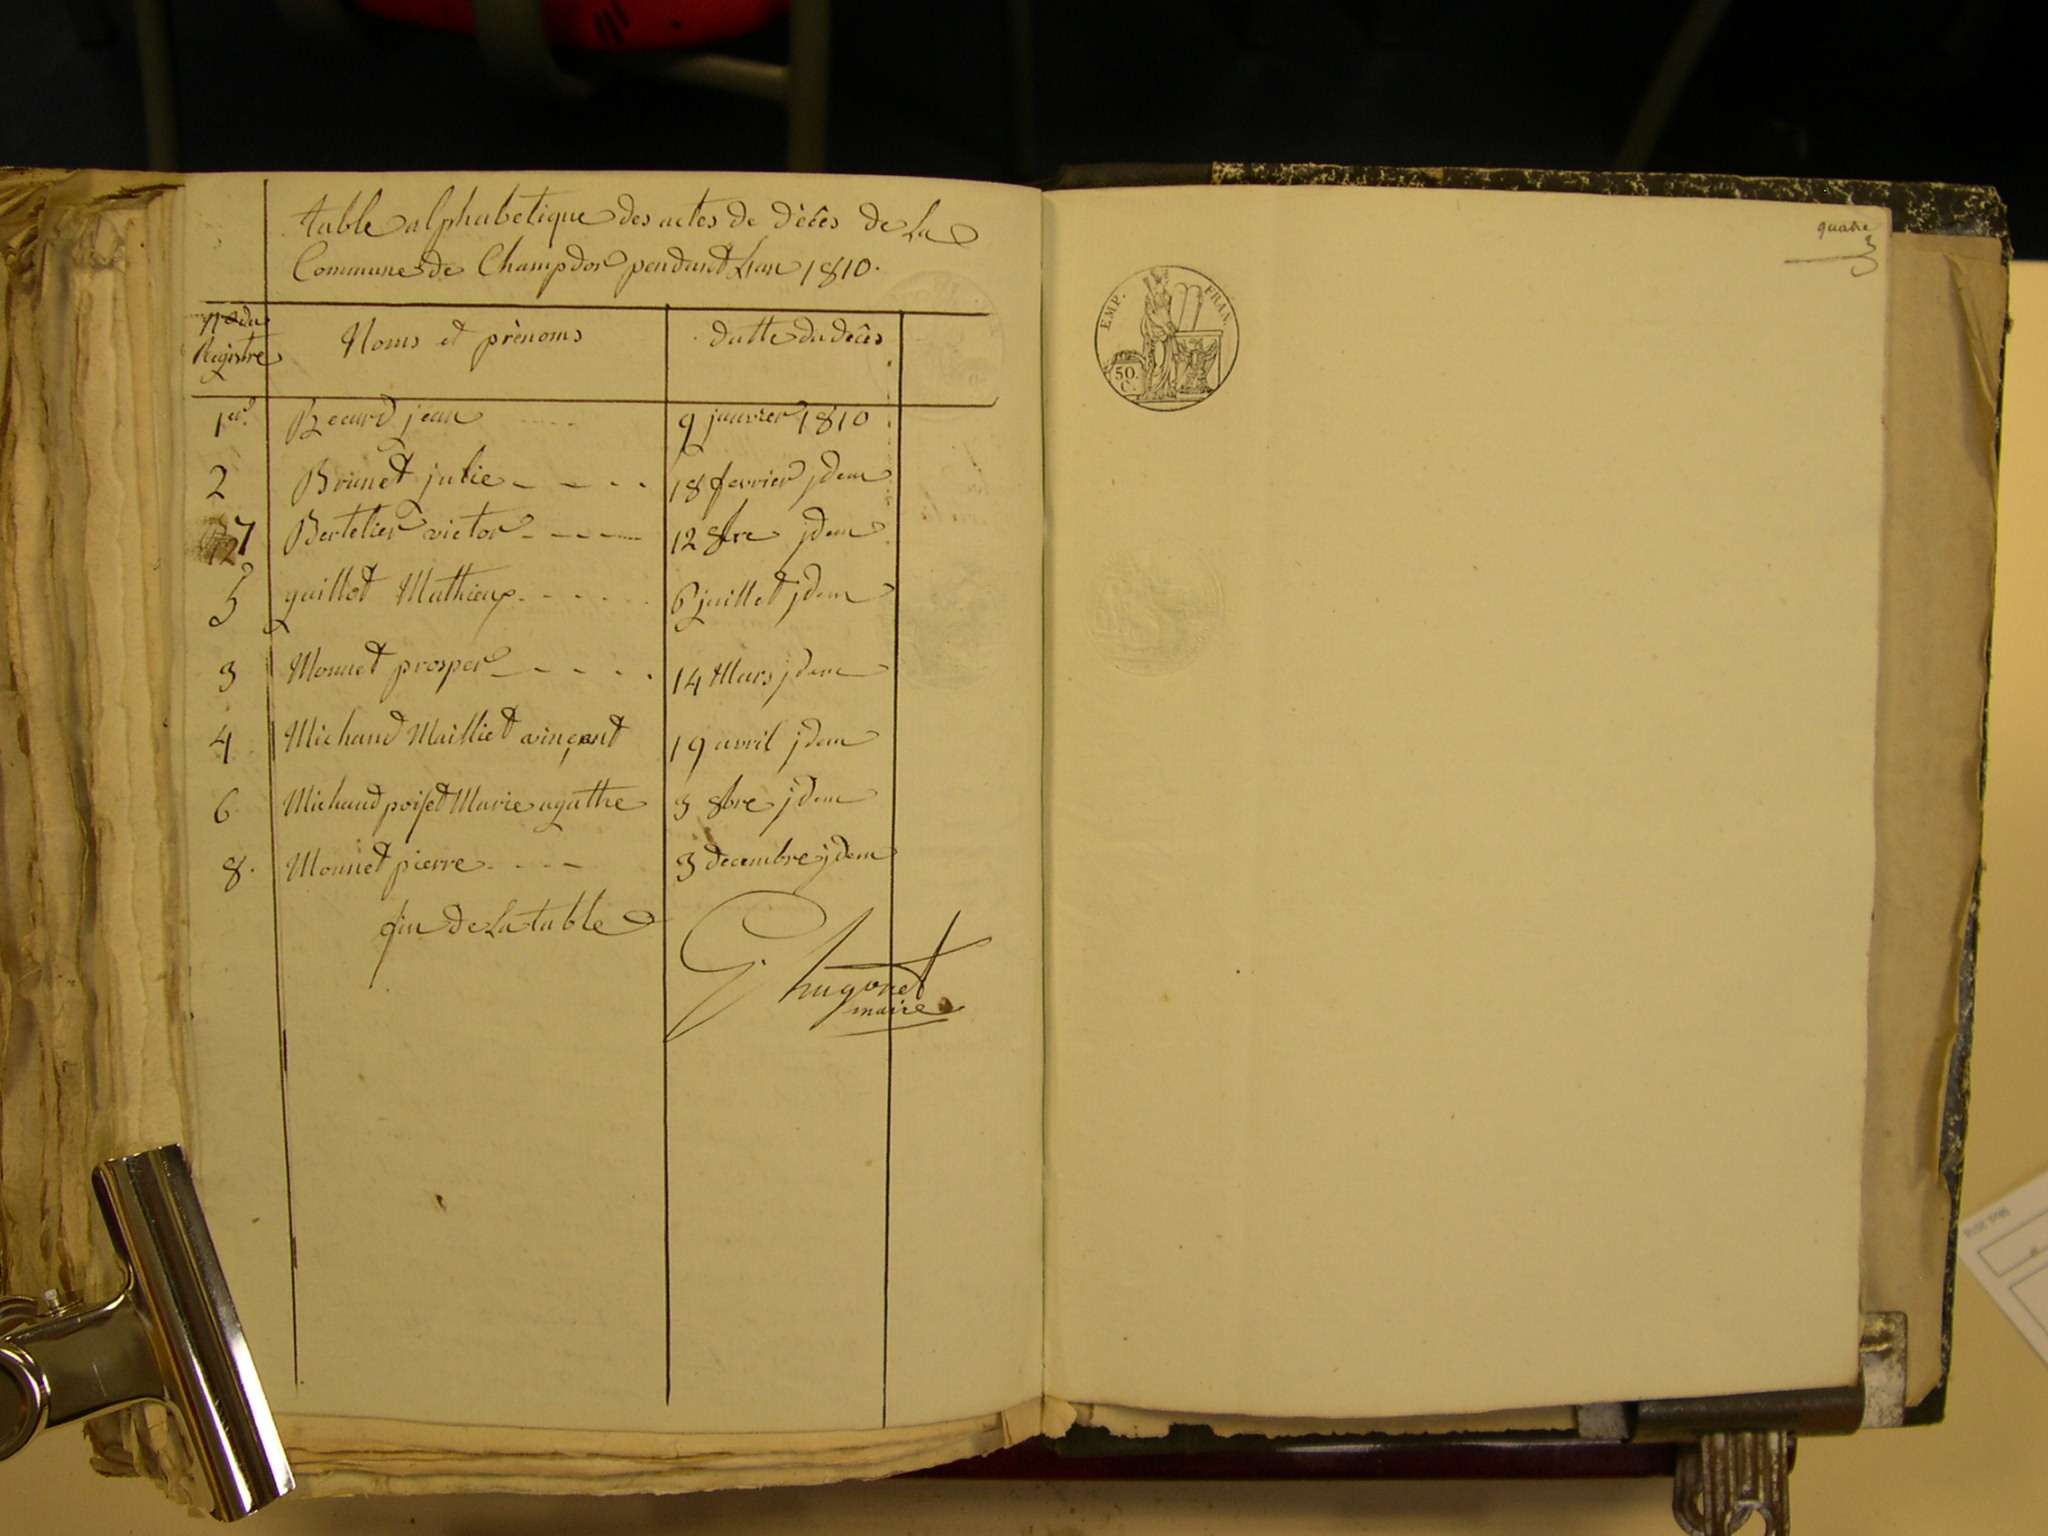 table alphabetique des actes de décès de La
Commune de Champdor pendant Lan 1810.
Nº du
Registre
Noms et prénoms
datte du décès
1er Becard jean 9 janvier 1810
2 Brunet julie 18 fevrier jdem
7 Bertelier victor 12 8bre jdem
5 guillot Mathieux 6 juillet jdem
3 Monnet prosper 14 Mars jdem
4 Michaud Mailliet vinçent 19 avril jdem
6 Michaud poiset Marie agathe 3 8bre jdem
8. Monnet pierre 3 decembre jdem
fin de La table
G. hugonet
maire
quatre
3
EMP. FRAN.
50.
C.